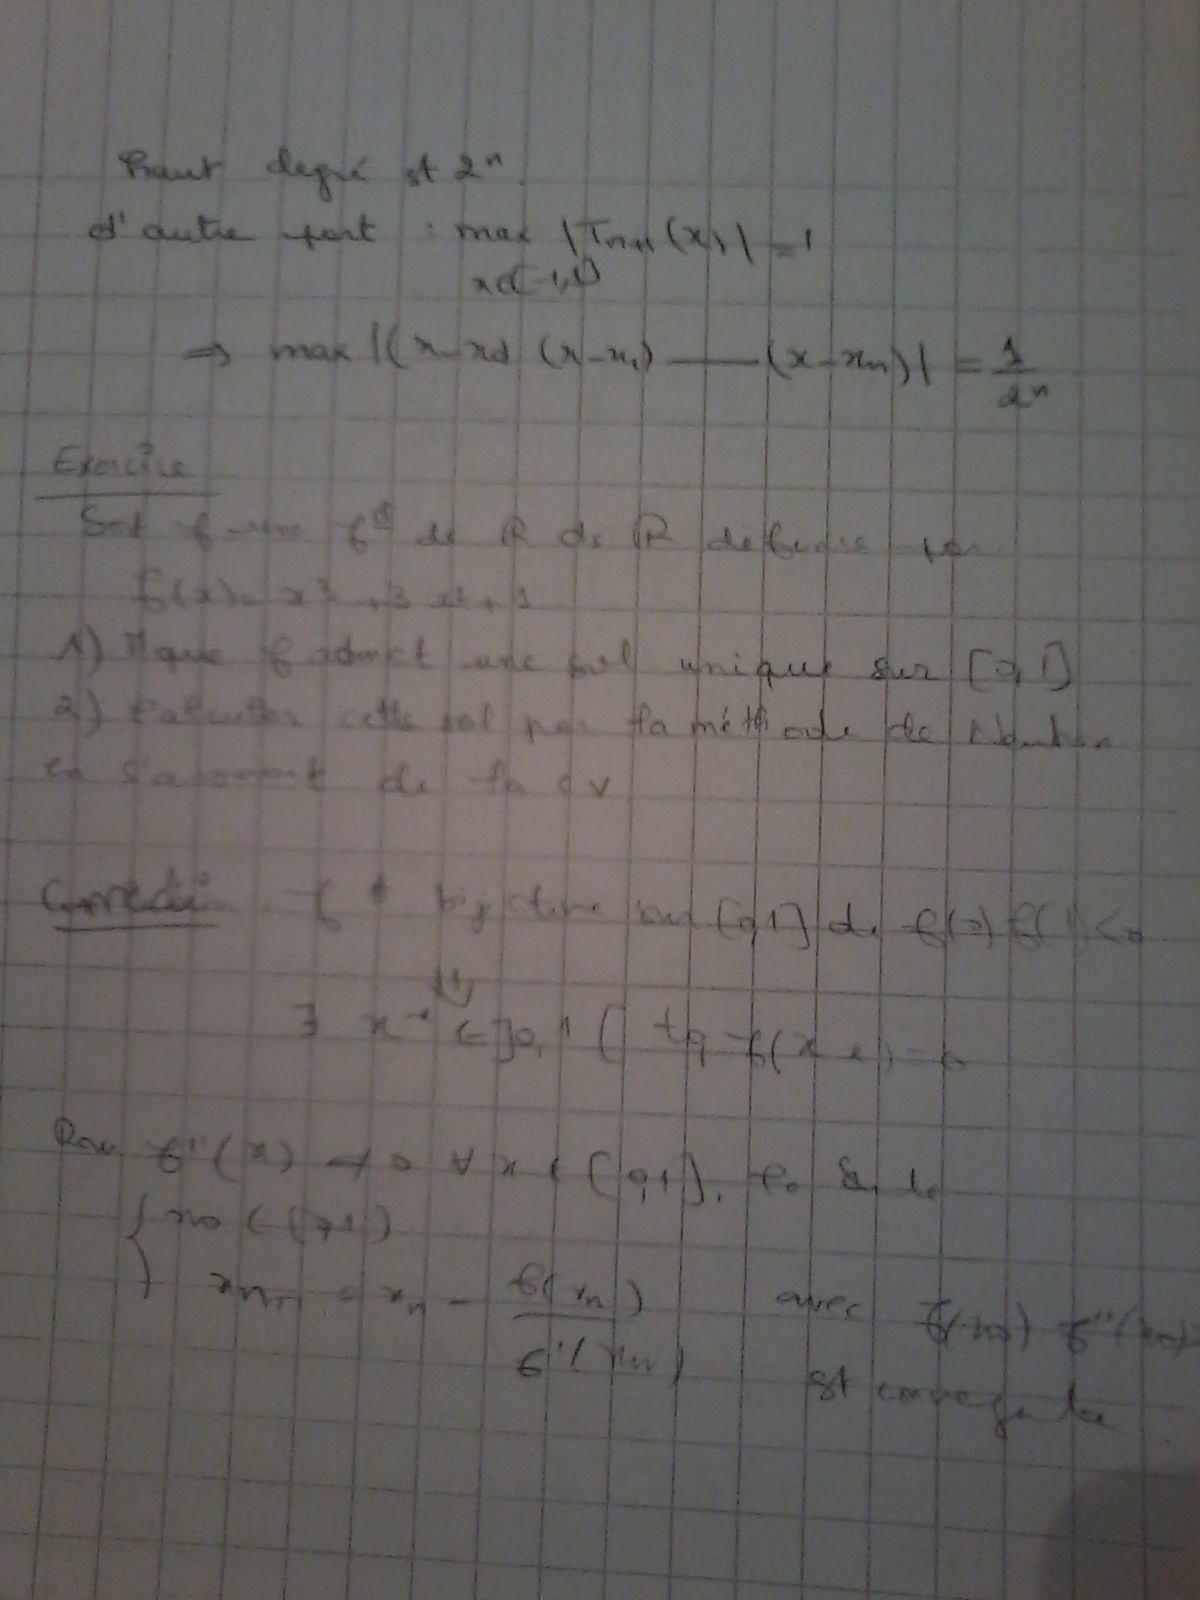 haut degré st 2ⁿ.
d'autre part : max |Tn+1(x)| = 1
x∈[-1,1]
⇒ max |(x-x0) (x-x1) —— (x-xn)| = 1/2ⁿ
Exercice
Soit f une f° de ℝ ds ℝ definie par
f(x) = x³ + 3x² + 1
1) Mque f admet une sol unique sur [0,1]
2) Calculer cette sol par la méthode de Newton
en s'assurant de la cv
f bijective sur [0,1] de f(0) f(1) < 0
⇓
∃ x* ∈ ]0,1[ tq f(x*) = 0
f''(x) ≠ 0 ∀ x ∈ [0,1],
{ x0 ∈ [0,1]
xn+1 = xn - f(xn)/f'(xn) avec f(x0) f''(x0)
st convergente